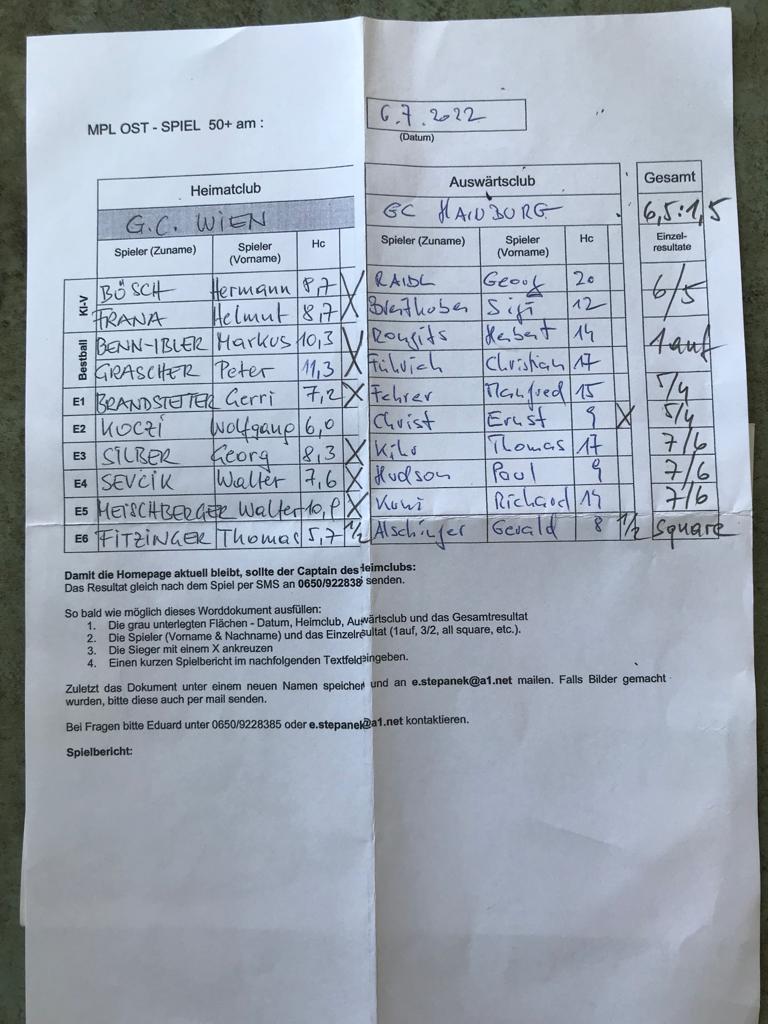 MPL OST - SPIEL 50+ am : 6.7.2022
(Datum)
Heimatclub Auswärtsclub Gesamt
G.C. WIEN GC HAINBURG 6,5:1,5
Spieler (Zuname) Spieler (Vorname) Hc Spieler (Zuname) Spieler (Vorname) Hc Einzel-resultate
Kl-V BÖSCH Hermann 8,7 X RAIDL Georg 20 6/5
FRANA Helmut 8,7 Sigi 12
Bestball BENN-IBLER Markus 10,3 X Herbert 14 1 auf
GRASCHER Peter 11,3 Führich Christian 17
E1 BRANDSTETTER Gerri 7,2 X Fehrer Manfred 15 5/4
E2 KOCZI Wolfgang 6,0 Christ Ernst 9 X 5/4
E3 SILBER Georg 8,3 X Thomas 17 7/6
E4 SEVCIK Walter 7,6 X Hudson Paul 9 7/6
E5 METSCHBERGER Walter X Richard 14 7/6
E6 FITZINGER Thomas 5,7 1/2 Alschinger Gerald 8 1/2 Square
Damit die Homepage aktuell bleibt, sollte der Captain des Heimclubs:
Das Resultat gleich nach dem Spiel per SMS an 0650/922838 senden.
So bald wie möglich dieses Worddokument ausfüllen:
1. Die grau unterlegten Flächen - Datum, Heimclub, Auswärtsclub und das Gesamtresultat
2. Die Spieler (Vorname & Nachname) und das Einzelresultat (1auf, 3/2, all square, etc.).
3. Die Sieger mit einem X ankreuzen
4. Einen kurzen Spielbericht im nachfolgenden Textfeld eingeben.
Zuletzt das Dokument unter einem neuen Namen speichern und an e.stepanek@a1.net mailen. Falls Bilder gemacht
wurden, bitte diese auch per mail senden.
Bei Fragen bitte Eduard unter 0650/9228385 oder e.stepanek@a1.net kontaktieren.
Spielbericht: